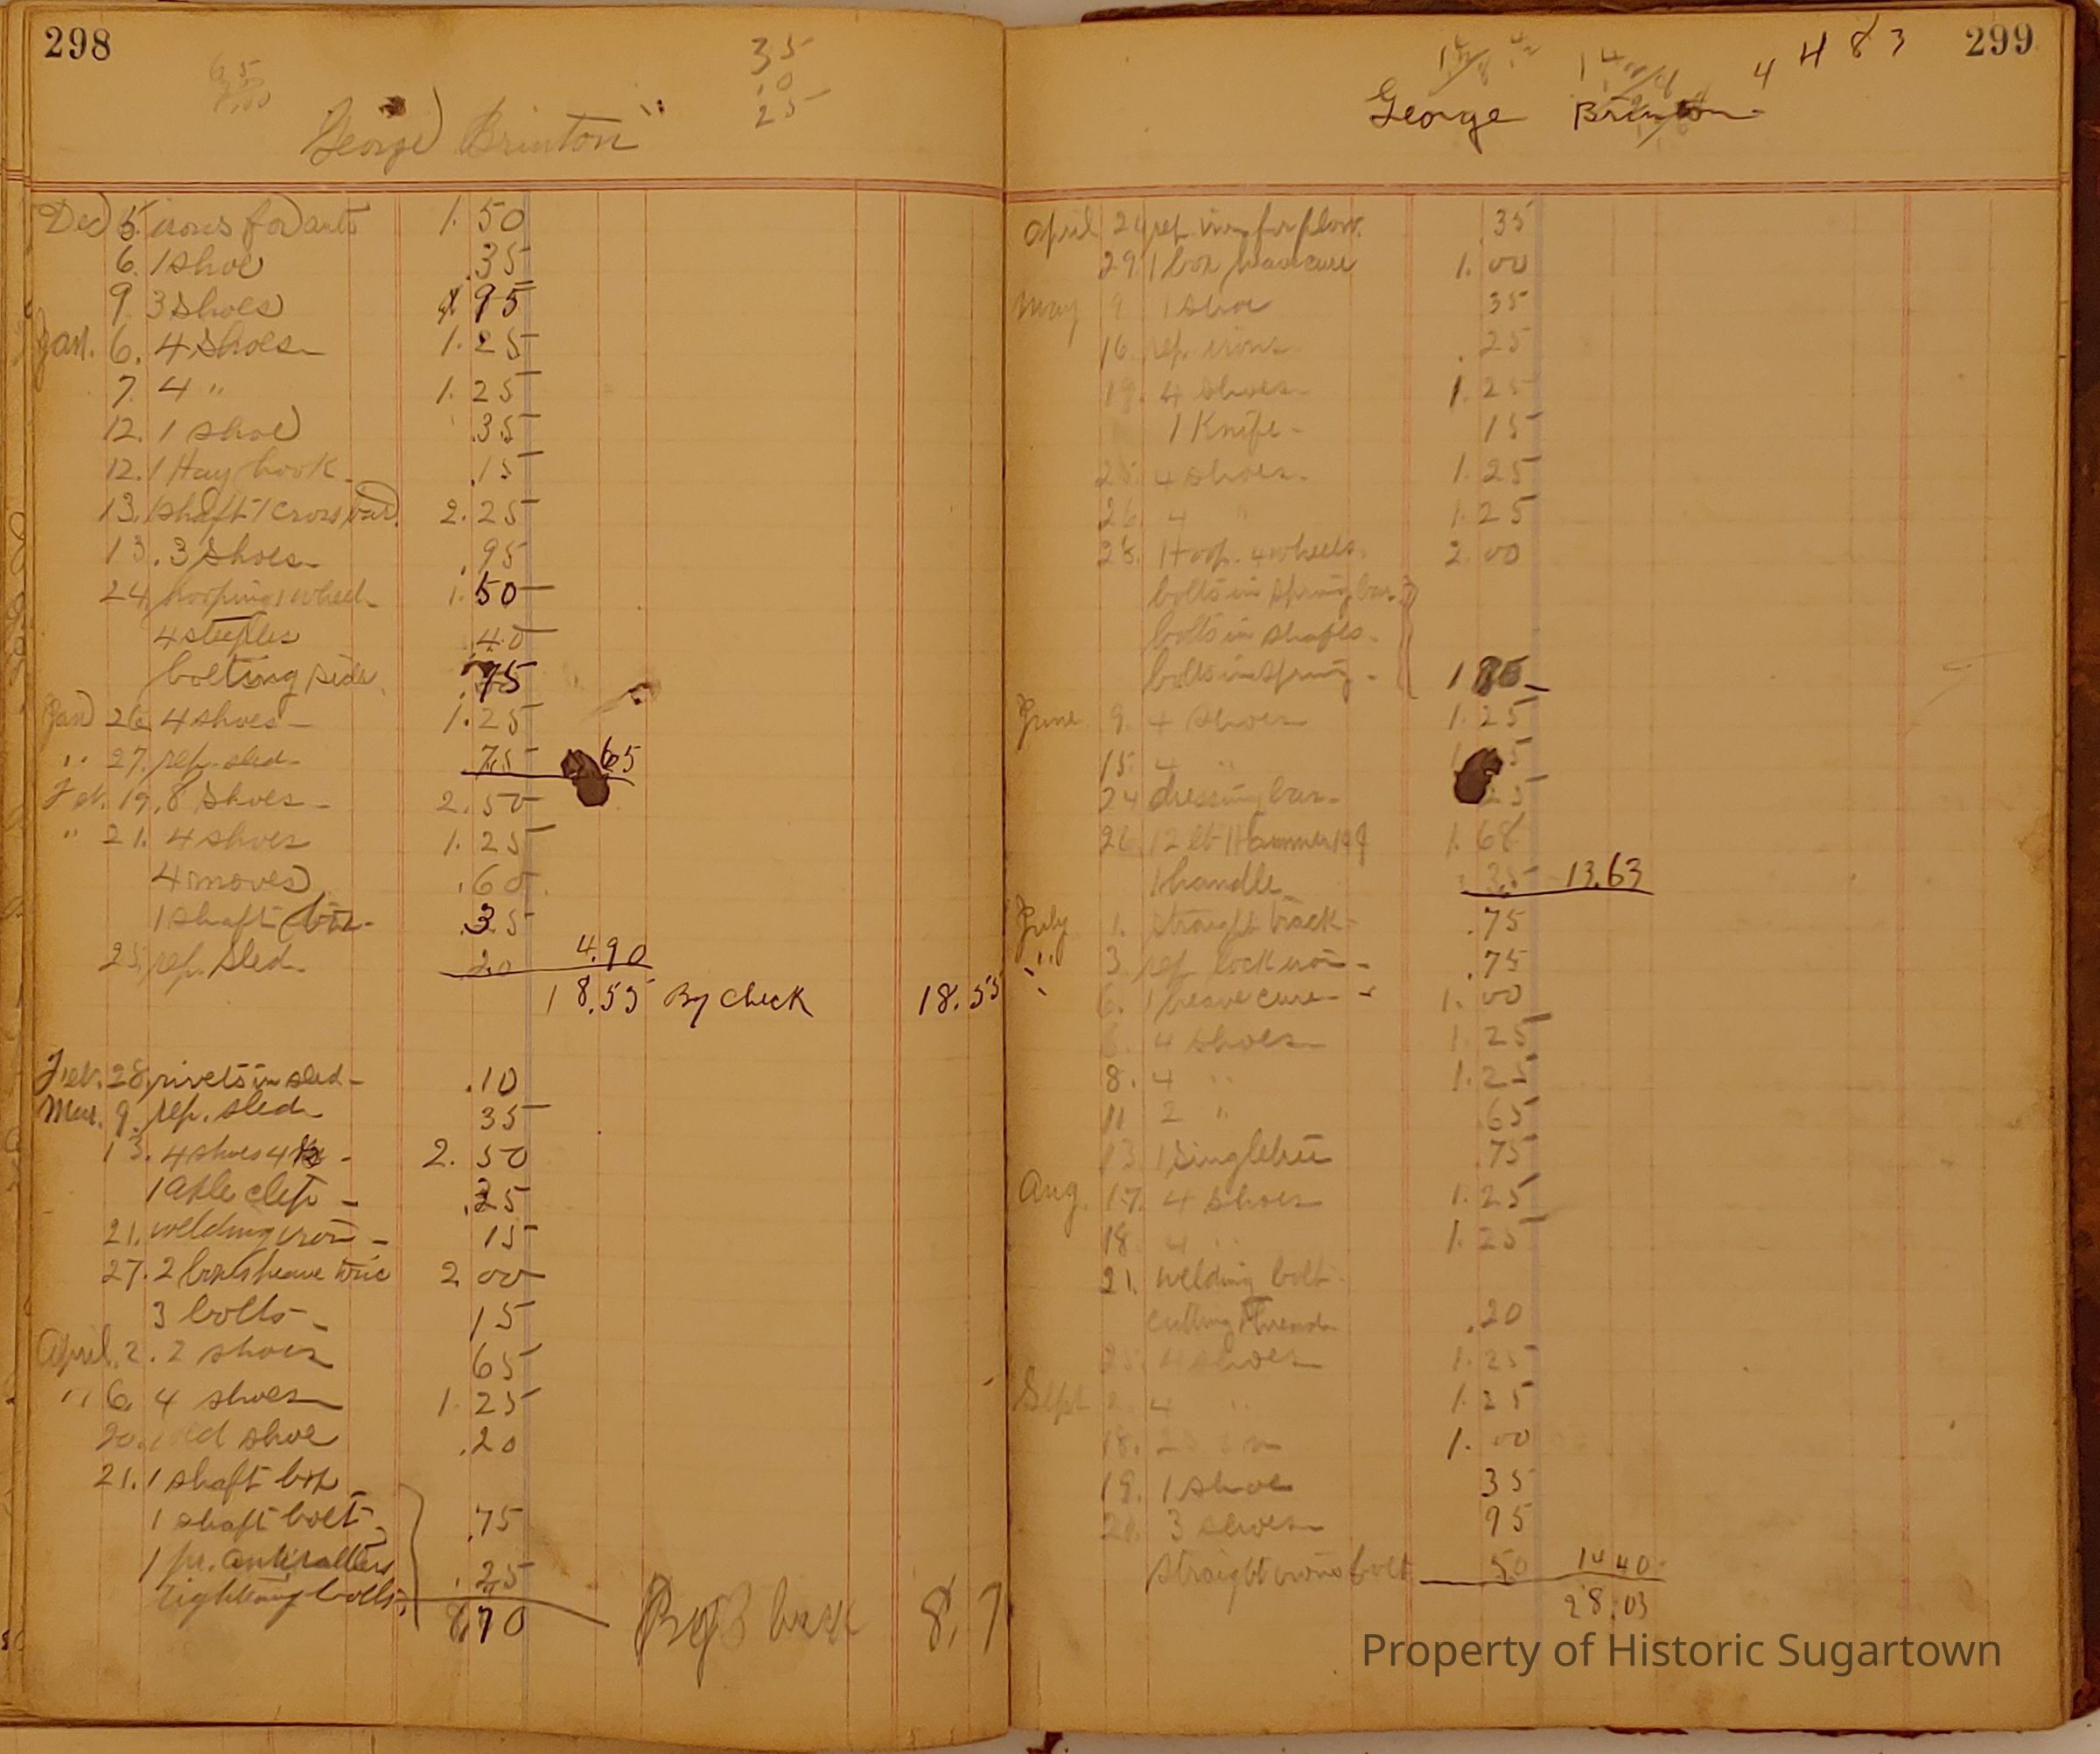 298
35
10
25
George Brinton
Dec 5. irons for auto 1.50
6. 1 shoe .35
9. 3 shoes 95
Jan. 6. 4 shoes 1.25
7. 4 " 1.25
12. 1 shoe .35
12. 1 Hay hook .15
13. 1 shaft 1 cross bar 2.25
13. 3 shoes .95
24. hooping 1 wheel 1.50
4 steeples .40
bolting side .75
Jan 26. 4 shoes 1.25
" 27. rep. sled 75 65
Feb. 19. 8 shoes 2.50
" 21. 4 shoes 1.25
4 moves .60
1 shaft .35
25. rep. sled 20 4.90
18.55 By check 18.55
Feb. 28. rivets in sled .10
Mar. 9. rep. sled 35
13. 4 shoes 4 2.50
1 axle clip .25
21. welding iron 15
27. 2 boxes heave 2 00
3 bolts 15
April 2. 2 shoes 65
" 6. 4 shoes 1.25
20. old shoe .20
21. 1 shaft
1 shaft bolt .75
1 pr. antirattlers .25
tightening bolts
8.70 By 8.7
299
4 4 8 3
George Brinton
April 24 rep. iron for plow .35
29 1 box heave cure 1.00
May 9 1 shoe 35
16. rep. irons .25
19. 4 shoes 1.25
1 Knife 15
25. 4 shoes 1.25
26. 4 " 1.25
28. Hoop. 4 wheels 2.00
bolts in spring bar
bolts in shafts
bolts in spring 1
June 9. 4 shoes 1.25
15. 4 "
24 dressing bar 25
26. 12 lb Hammer 1.68
1 handle 35 13.63
July 1. straight track .75
" 3. rep. lock iron .75
" 6. 1 heave cure 1.00
6. 4 shoes 1.25
8. 4 " 1.25
11 2 " 65
13 1 singletree .75
Aug. 17. 4 shoes 1.25
18. 4 " 1.25
21. welding bolt
cutting thread .20
25. 4 shoes 1.25
Sept 4 " 1.25
18. 1.00
19. 1 shoe 35
20. 3 shoes 95
straight irons bolt 50 14 40
28.03
Property of Historic Sugartown